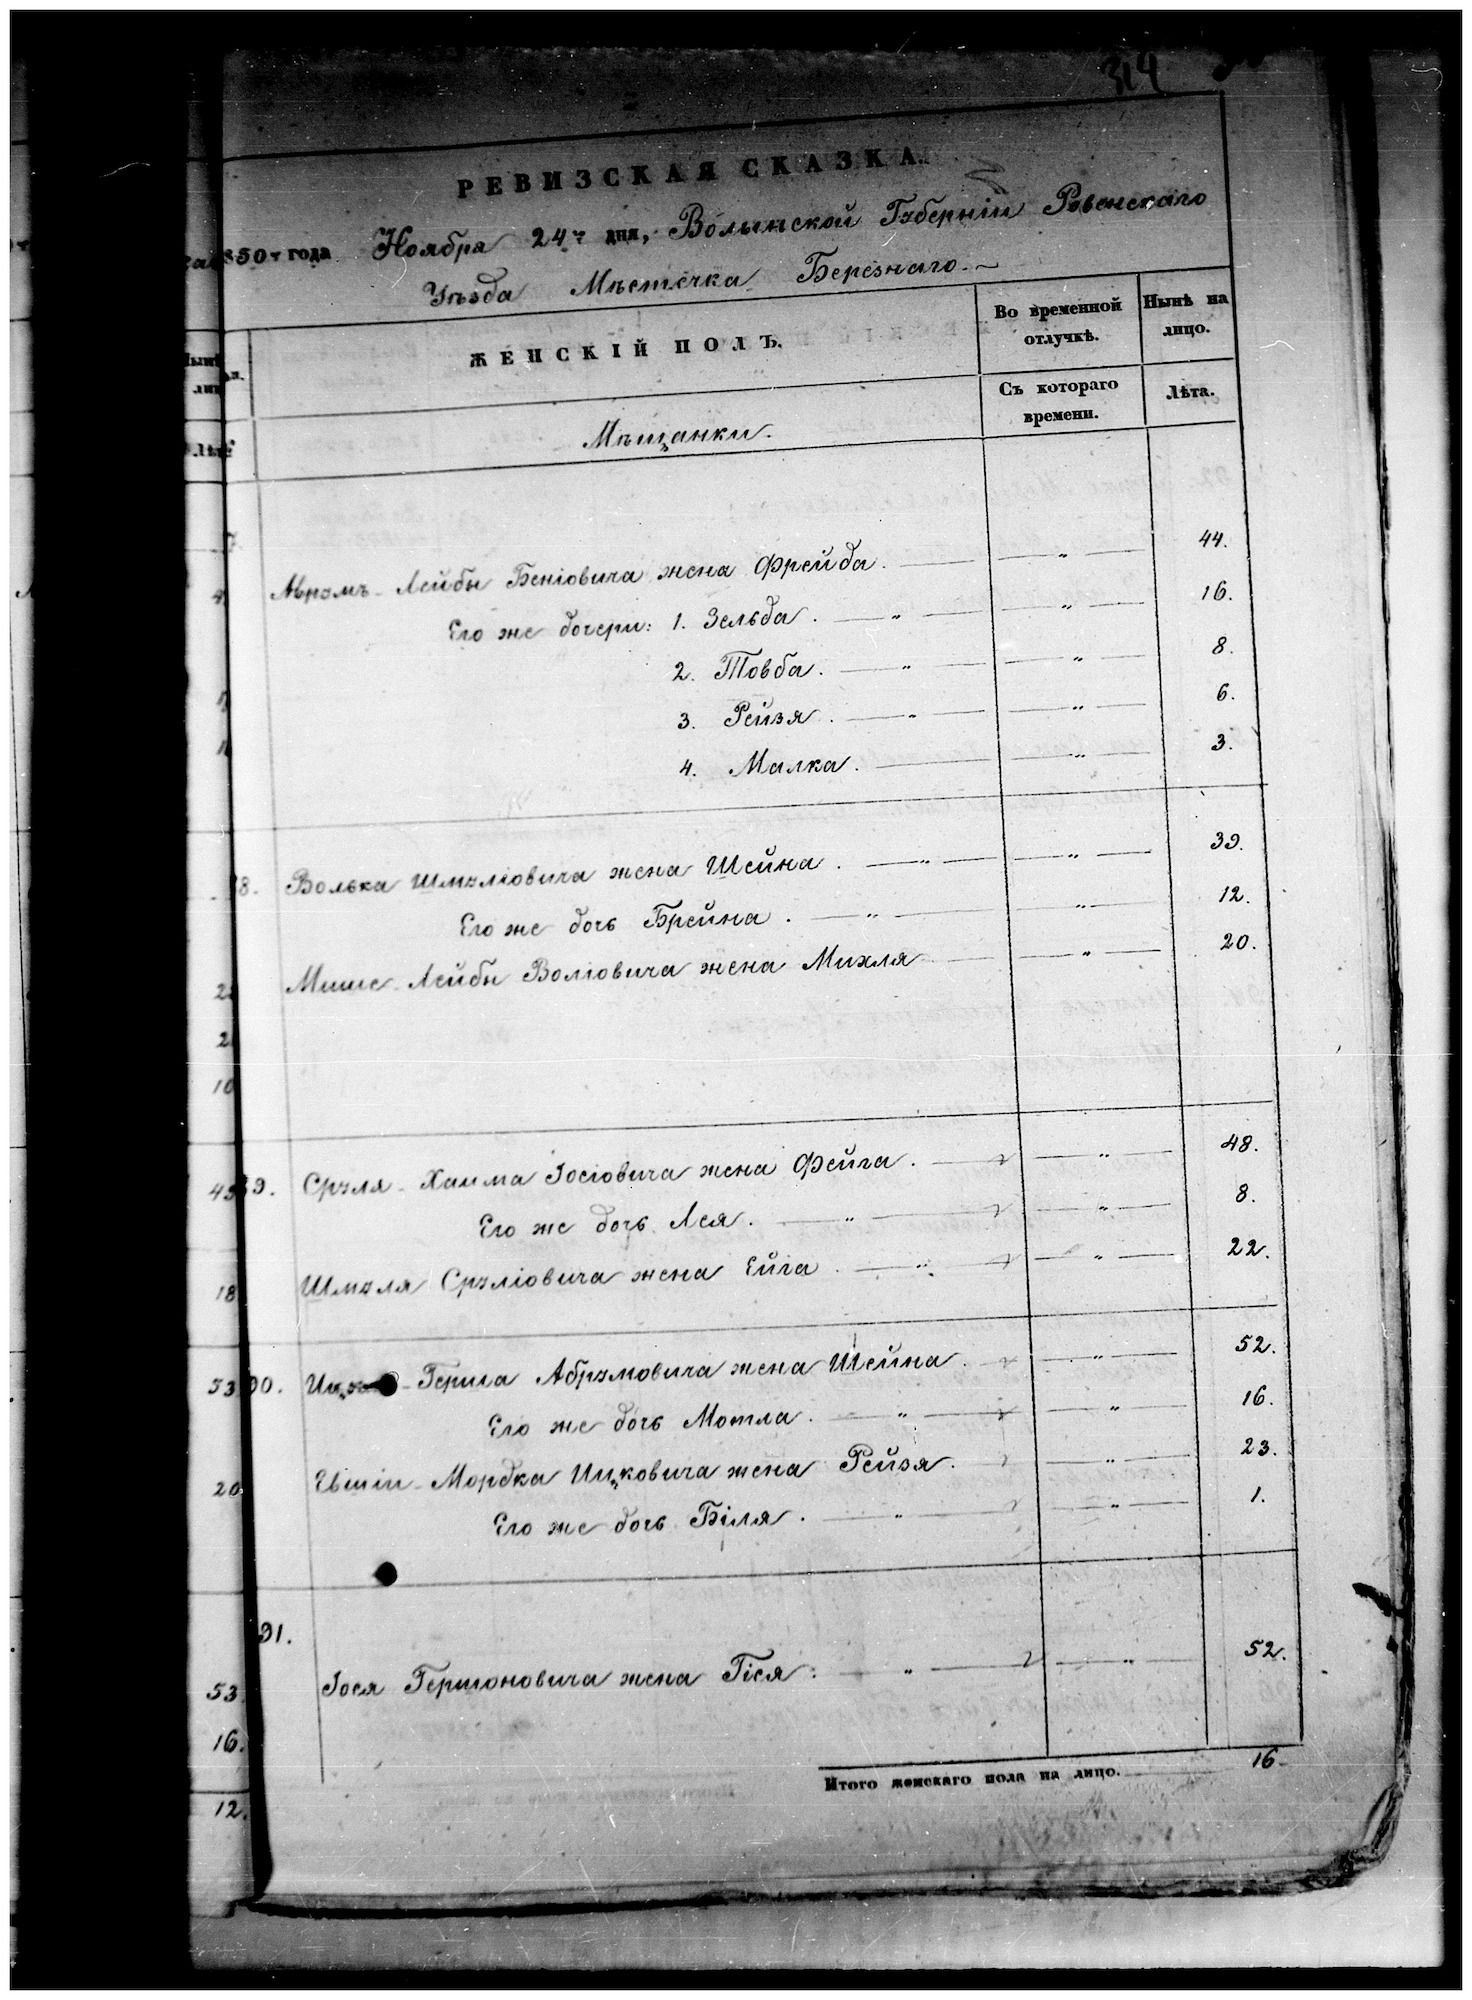 314
РЕВИЗСКАЯ СКАЗКА.
850 г года Ноября 24 г дня, Волынской Губерніи Ровенскаго
Уѣзда Мѣстечка Березнаго.
ЖЕНСКІЙ ПОЛЪ.
Во временной отлучкѣ.
Нынѣ на лицо.
Съ котораго времени.
Лѣта.
Мѣщанки.
Аврумъ-Лейбы Беніовича жена Фрейда. " 44.
Его же дочери: 1. Зельда. " " 16.
2. Товба. " " 8.
3. Рейзя. " " 6.
4. Малка. " 3.
8. Волька Шмуліовича жена Шейна. " " 39.
Его же дочь Брейна. " " 12.
Мише-Лейбы Воліовича жена Михля " 20.
9. Сруля-Хаима Іосіовича жена Фейга. " 48.
Его же дочь Лея. " " 8.
Шмуля Сруліовича жена Ейга. " " 22.
90. Герша Абрумовича жена Шейна. " 52.
Его же дочь Мотля. " " 16.
Евшіи-Мордка Ицковича жена Рейзя. " 23.
Его же дочь Біля. " " 1.
91.
Іося Гершоновича жена Гіся: " " 52.
Итого женскаго пола на лицо. 16